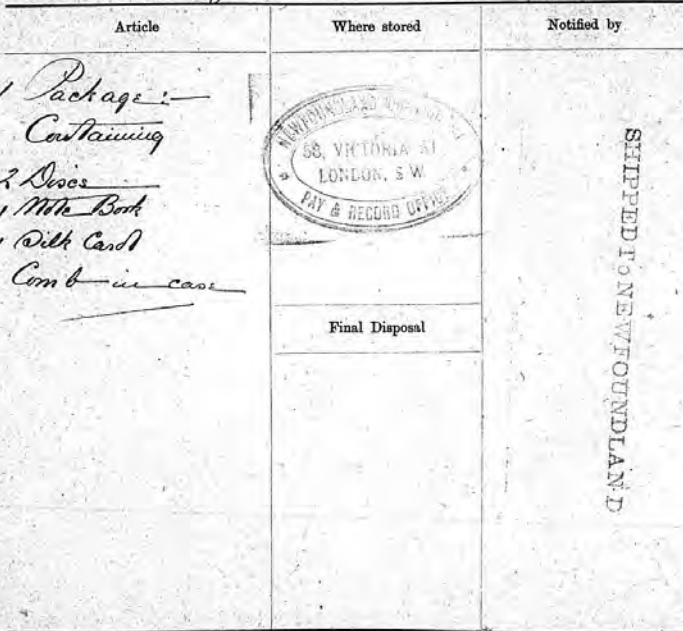 Article
Where stored
Notified by
1 Package :—
Containing
2 Discs
1 Note Book
1 Silk Card
Comb in case
NEWFOUNDLAND
58, VICTORIA ST
LONDON, S W
PAY & RECORD OFFICE
Final Disposal
SHIPPED TO NEWFOUNDLAND